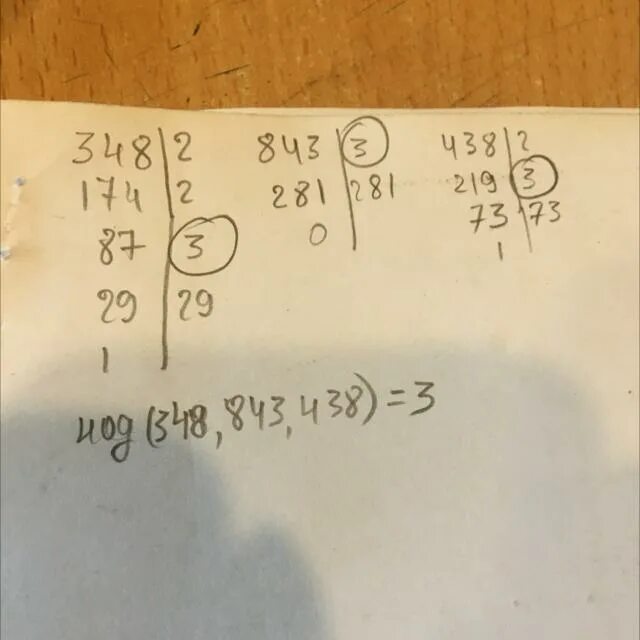 348 | 2 843 | 3 438 | 2
174 | 2 281 | 281 219 | 3
87 | 3 0 | 73 | 73
29 | 29 1 |
1 |
нод (348, 843, 438) = 3